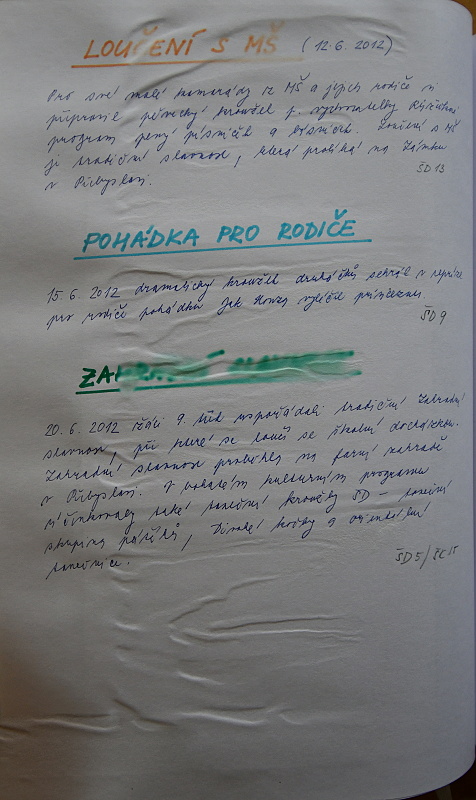 LOUČENÍ S MŠ (12.6. 2012)
Pro své malé kamarády z MŠ a jejich rodiče si
připravil pěvecký kroužek p. vychovatelky
program plný písniček a básniček. Loučení s MŠ
je tradiční slavnost, která probíhá na zámku
v Přibyslavi.
ŠD 13
POHÁDKA PRO RODIČE
15. 6. 2012 dramatický kroužek druháčků sehrál v repríze
pro rodiče pohádku Jak Honza vyléčil princeznu.
ŠD 9
20. 6. 2012 žáci 9. tříd uspořádali tradiční Zahradní
slavnost, při které se loučí se školní docházkou.
Zahradní slavnost proběhla na farní zahradě
v Přibyslavi. V bohatém kulturním programu
účinkovaly také taneční kroužky ŠD - taneční
skupina páťáků, Divoké kočky a orientální
tanečnice.
ŠD 5/ŠK 15